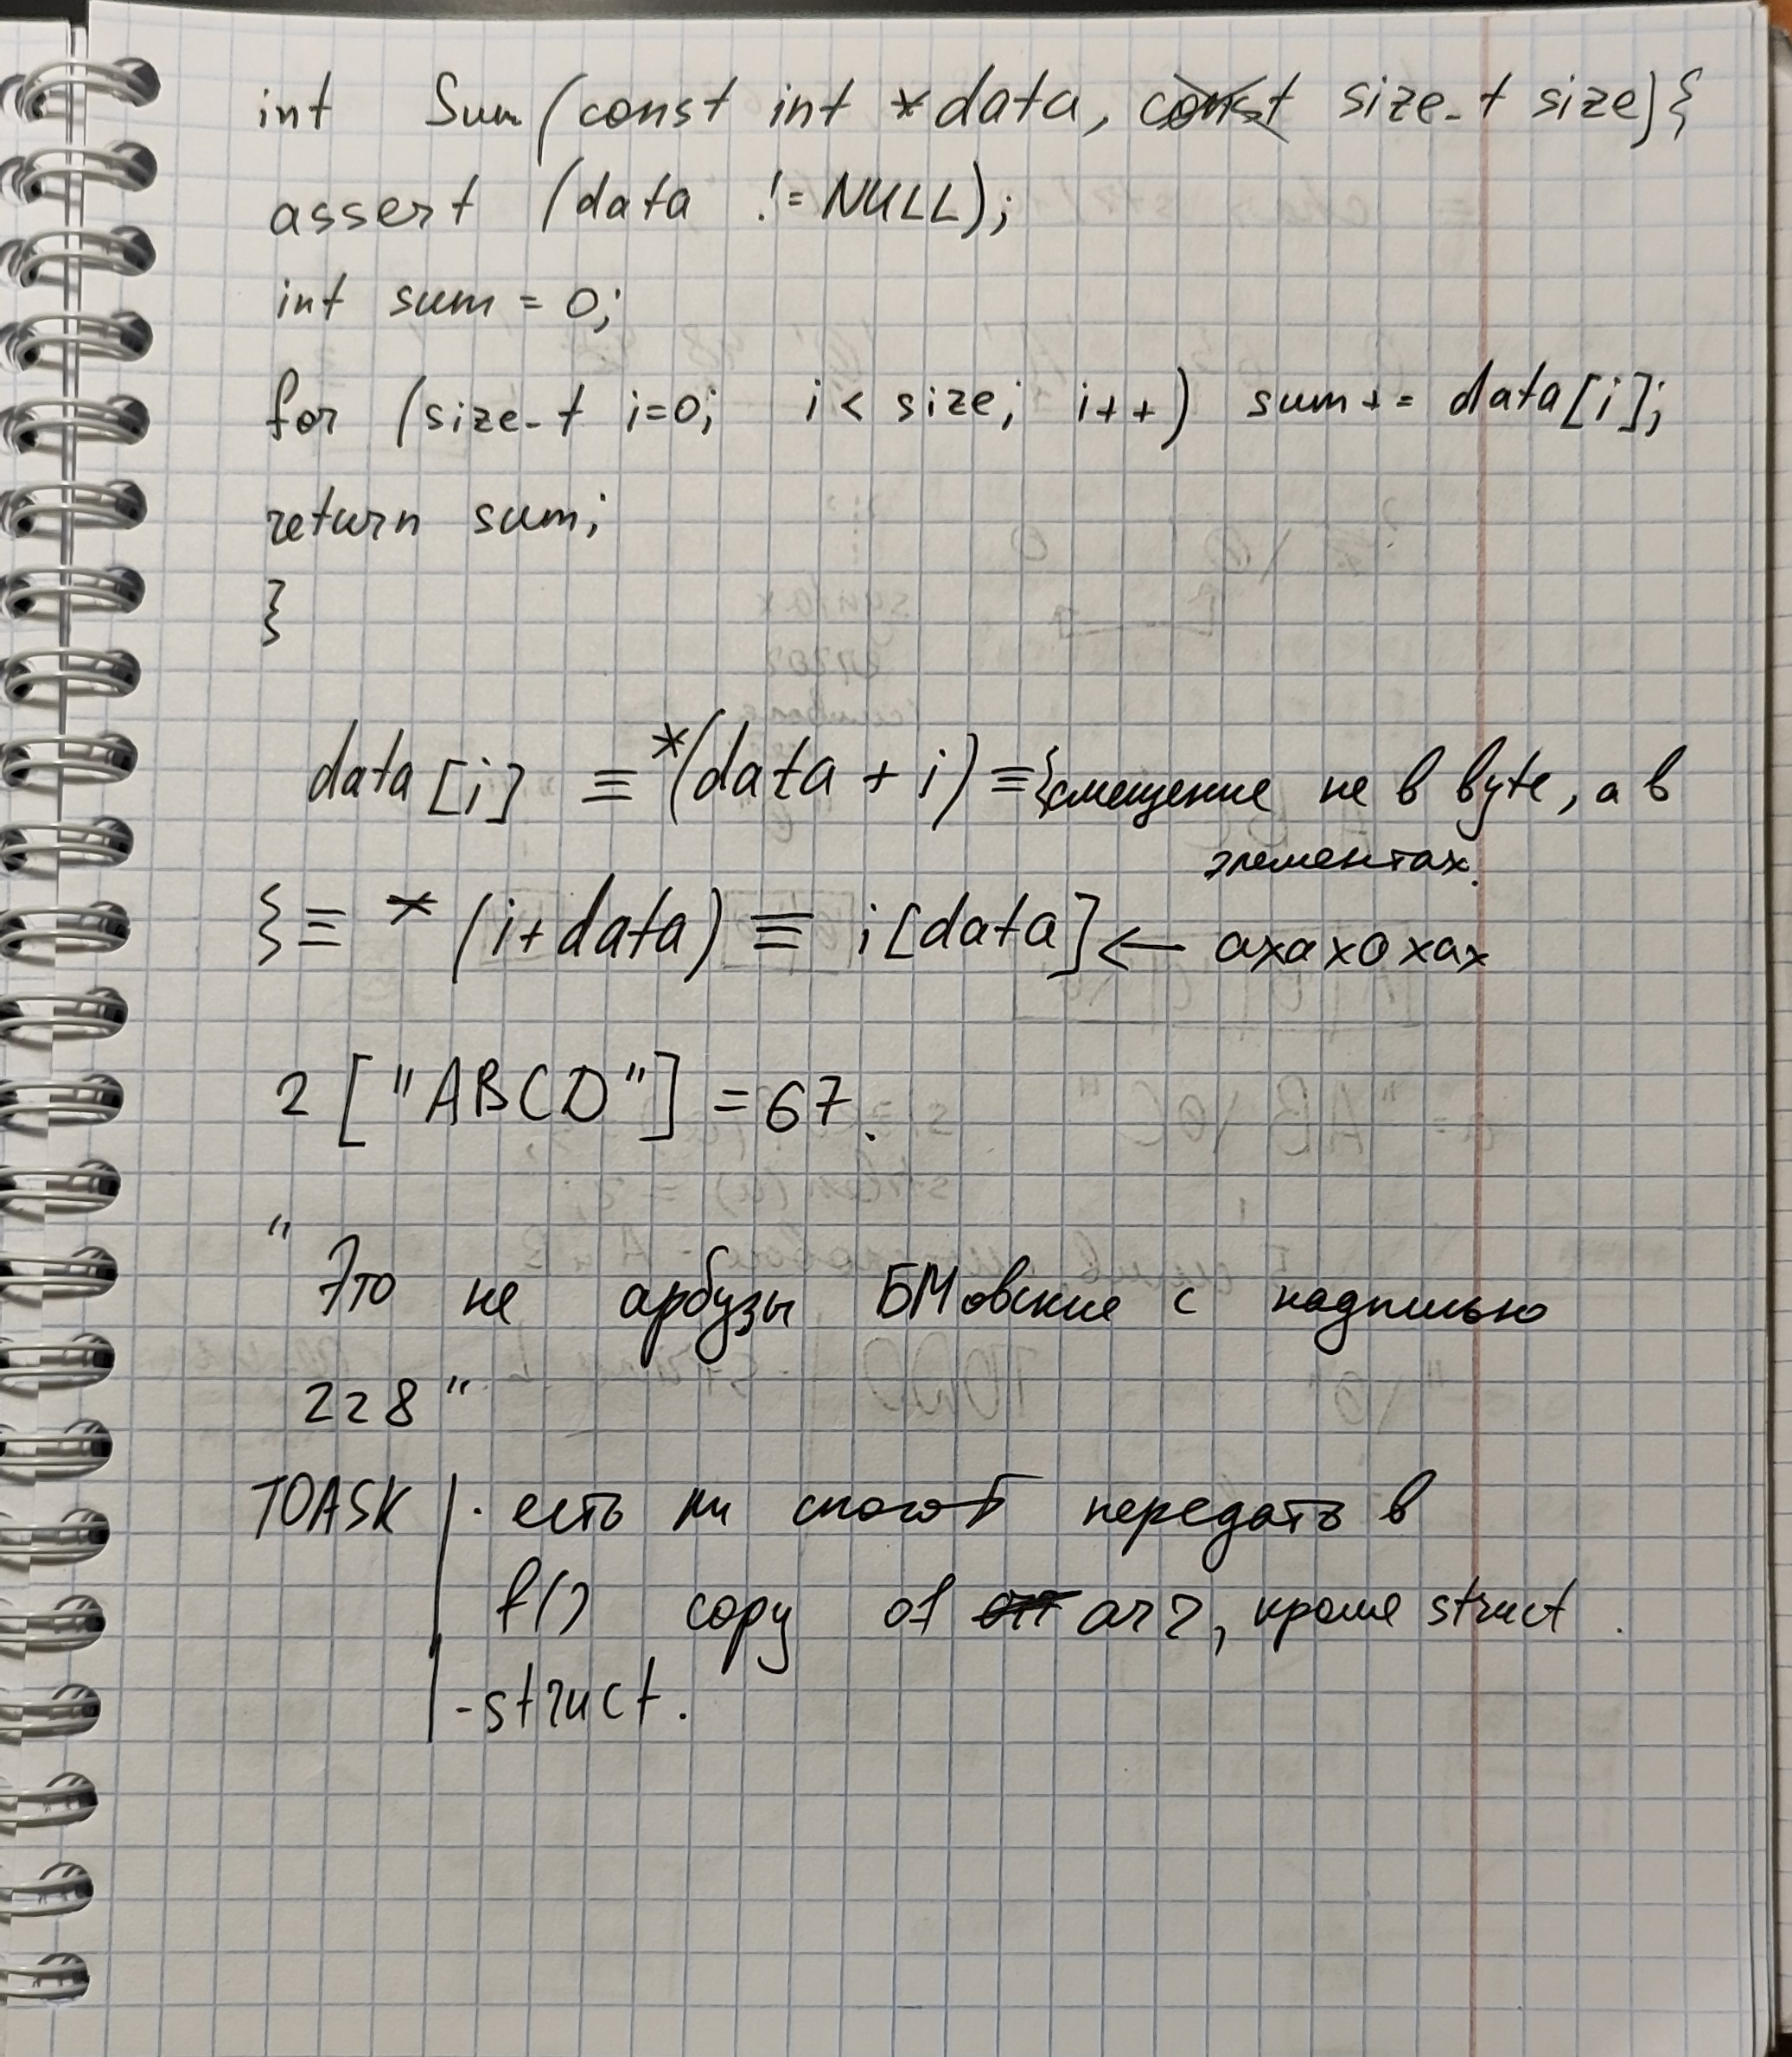 int Sum (const int *data, const size_t size) {
assert (data != NULL);
int sum = 0;
for (size_t i=0; i < size; i++) sum += data[i];
return sum;
}
data [i] ≡ *(data + i) ≡ {смещение не в byte, а в
элементах.
} ≡ * (i + data) ≡ i [data] ← ахахохах
2 ["ABCD"] = 67.
"
Это не арбузы БМовские с надписью
228"
TOASK | · есть ли способ передать в
f() copy of arr, кроме struct.
- struct.